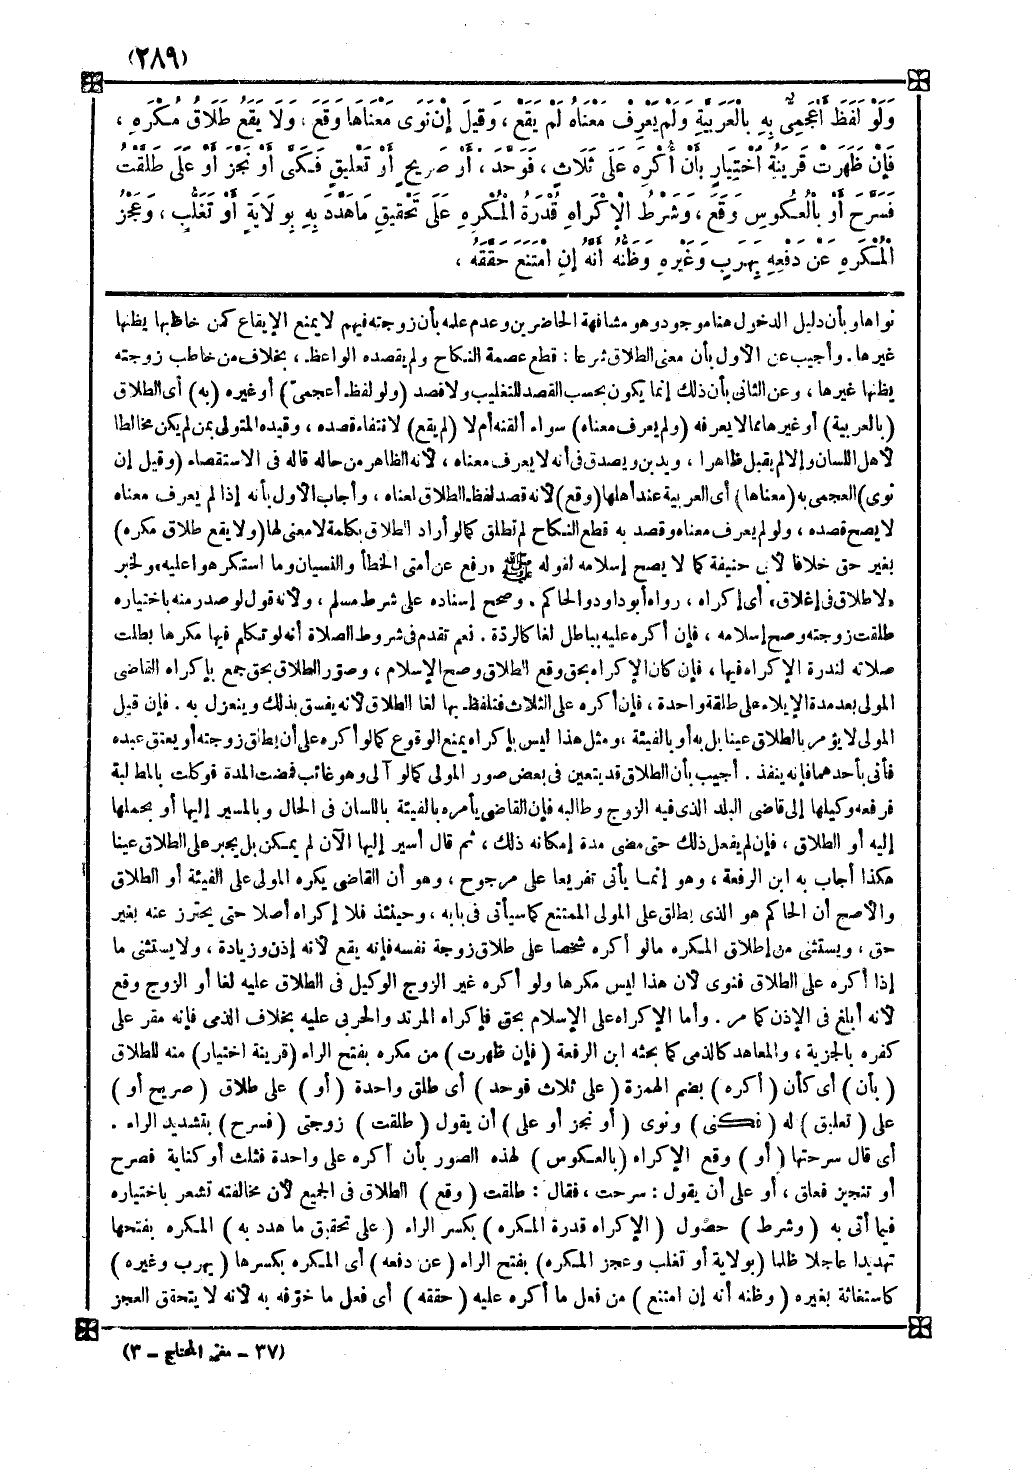 (٢٨٩)
وَلَوْ لَفَظَ أَعْجَمِيٌّ بِهِ بِالْعَرَبِيَّةِ وَلَمْ يَعْرِفْ مَعْنَاهُ لَمْ يَقَعْ ، وَقِيلَ إِنْ نَوَى مَعْنَاهَا وَقَعَ ، وَلَا يَقَعُ طَلَاقُ مُكْرَهٍ ،
فَإِنْ ظَهَرَتْ قَرِينَةُ اخْتِيَارٍ بِأَنْ أُكْرِهَ عَلَى ثَلَاثٍ ، فَوَحَّدَ ، أَوْ صَرِيحٍ أَوْ تَعْلِيقٍ فَكَنَى أَوْ نَجَّزَ أَوْ عَلَى طَلَّقْتُ
فَسَرَّحَ أَوْ بِالْعُكُوسِ وَقَعَ ، وَشَرْطُ الْإِكْرَاهِ قُدْرَةُ الْمُكْرِهِ عَلَى تَحْقِيقِ مَا هَدَّدَ بِهِ بِوِلَايَةٍ أَوْ تَغَلُّبٍ ، وَعَجْزُ
الْمُكْرَهِ عَنْ دَفْعِهِ بِهَرَبٍ وَغَيْرِهِ وَظَنُّهُ أَنَّهُ إِنِ امْتَنَعَ حَقَّقَهُ ،
نواها وبأن دليل الدخول هنا موجود وهو مشافهة الحاضرين وعدم علمه بأن زوجته فيهم لا يمنع الإيقاع كمن خاطبها يظنها
غيرها . وأجيب عن الأول بأن معنى الطلاق شرعا : قطع عصمة النكاح ولم يقصده الواعظ ، بخلاف من خاطب زوجته
يظنها غيرها ، وعن الثانى بأن ذلك إنما يكون بحسب القصد للتغليب ولا قصد (ولو لفظ أعجمىّ) أو غيره (به) أى الطلاق
(بالعربية) أو غيرها مما لا يعرفه (ولم يعرف معناه) سواء ألقنه أم لا (لم يقع) لانتفاء قصده ، وقيده المتولى بمن لم يكن مخالطا
لأهل اللسان وإلا لم يقبل ظاهرا ، ويدين ويصدق فى أنه لا يعرف معناه ، لأنه الظاهر من حاله قاله فى الاستقصاء (وقيل إن
نوى) العجمى به (معناها) أى العربية عند أهلها (وقع) لأنه قصد لفظ الطلاق لمعناه ، وأجاب الأول بأنه إذا لم يعرف معناه
لا يصح قصده ، ولو لم يعرف معناه وقصد به قطع النكاح لم تطلق كما لو أراد الطلاق بكلمة لا معنى لها (ولا يقع طلاق مكره)
بغير حق خلافا لأبى حنيفة كما لا يصح إسلامه لقوله ﷺ «رفع عن أمتى الخطأ والنسيان وما استكرهوا عليه» ولخبر
«لا طلاق فى إغلاق» أى إكراه ، رواه أبو داود والحاكم . وصحح إسناده على شرط مسلم ، ولأنه قول لو صدر منه باختياره
طلقت زوجته وصح إسلامه ، فإن أكره عليه بباطل لغا كالردّة . نعم تقدم فى شروط الصلاة أنه لو تكلم فيها مكرها بطلت
صلاته لندرة الإكراه فيها ، فإن كان الإكراه بحق وقع الطلاق وصح الإسلام ، وصوّر الطلاق بحق جمع بإكراه القاضى
المولى بعد مدة الإيلاء على طلقة واحدة ، فإن أكره على الثلاث فتلفظ بها لغا الطلاق لأنه يفسق بذلك وينعزل به . فإن قيل
المولى لا يؤمر بالطلاق عينا بل به أو بالفيئة ، ومثل هذا ليس بإكراه يمنع الوقوع كما لو أكره على أن يطلق زوجته أو يعتق عبده
فأتى بأحدهما فإنه ينفذ . أجيب بأن الطلاق قد يتعين فى بعض صور المولى كما لو آلى وهو غائب فمضت المدة فوكلت بالمطالبة
فرفعه وكيلها إلى قاضى البلد الذى فيه الزوج وطالبه فإن القاضى يأمره بالفيئة باللسان فى الحال وبالمسير إليها أو بحملها
إليه أو الطلاق ، فإن لم يفعل ذلك حتى مضى مدة إمكانه ذلك ، ثم قال أسير إليها الآن لم يمكن بل يجبر على الطلاق عينا
هكذا أجاب به ابن الرفعة ، وهو إنما يأتى تفريعا على مرجوح ، وهو أن القاضى يكره المولى على الفيئة أو الطلاق
والأصح أن الحاكم هو الذى يطلق على المولى الممتنع كما سيأتى فى بابه ، وحينئذ فلا إكراه أصلا حتى يحترز عنه بغير
حق ، ويستثنى من إطلاق المكره ما لو أكره شخصا على طلاق زوجة نفسه فإنه يقع لأنه إذن وزيادة ، ولا يستثنى ما
إذا أكره على الطلاق فنوى لأن هذا ليس مكرها ولو أكره غير الزوج الوكيل فى الطلاق عليه لغا أو الزوج وقع
لأنه أبلغ فى الإذن كما مر . وأما الإكراه على الإسلام بحق فإكراه المرتد والحربى عليه بخلاف الذمى فإنه مقر على
كفره بالجزية ، والمعاهد كالذمى كما بحثه ابن الرفعة (فإن ظهرت) من مكره بفتح الراء (قرينة اختيار) منه للطلاق
(بأن) أى كأن (أكره) بضم الهمزة (على ثلاث فوحد) أى طلق واحدة (أو) على طلاق (صريح أو)
على (تعليق) له (فكنى) ونوى (أو نجز أو على) أن يقول (طلقت) زوجتى (فسرح) بتشديد الراء .
أى قال سرحتها (أو) وقع الإكراه (بالعكوس) لهذه الصور بأن أكره على واحدة فثلث أو كناية فصرح
أو تنجيز فعلق ، أو على أن يقول : سرحت ، فقال : طلقت (وقع) الطلاق فى الجميع لأن مخالفته تشعر باختياره
فيما أتى به (وشرط) حصول (الإكراه قدرة المكره) بكسر الراء (على تحقيق ما هدد به) المكره بفتحها
تهديدا عاجلا ظلما (بولاية أو تغلب وعجز المكره) بفتح الراء (عن دفعه) أى المكره بكسرها (بهرب وغيره)
كاستغاثة بغيره (وظنه أنه إن امتنع) من فعل ما أكره عليه (حققه) أى فعل ما خوّفه به لأنه لا يتحقق العجز
(٣٧ - مغنى المحتاج - ٣)